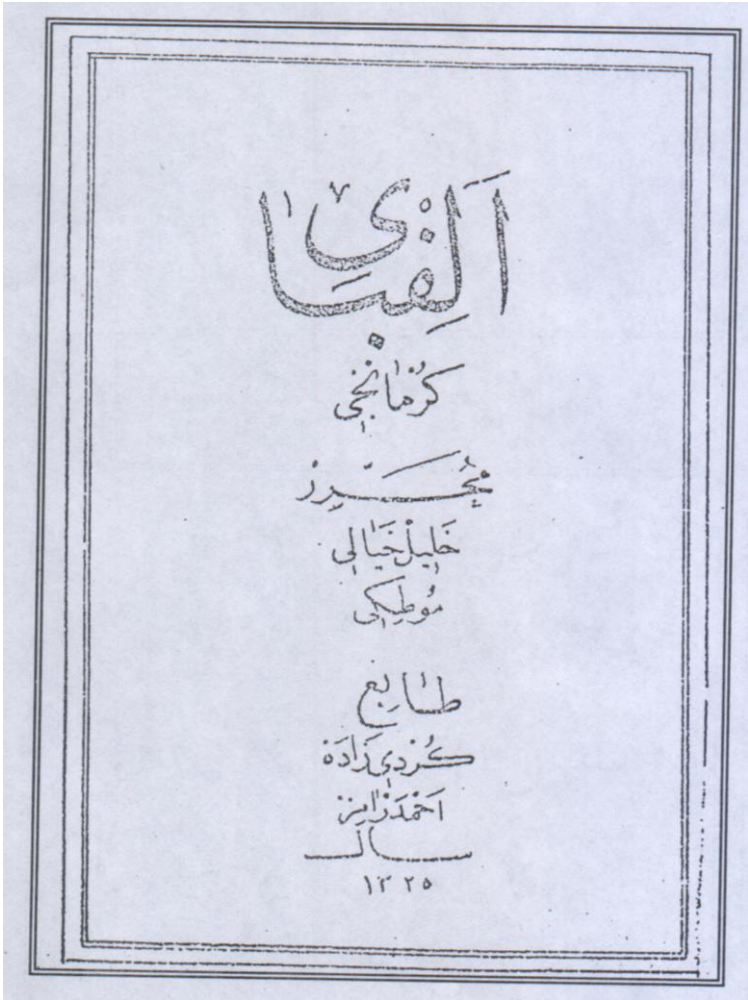 اَلِفبَایٰ
کُرْمَانْجِی
مُحَرِّرْ
خَلِیلْ خَیَالِی
مُوطِکِی
طَابِعْ
کُرْدِی زَادَهْ
اَحْمَدْ رَامِزْ
سال
١٣٢٥